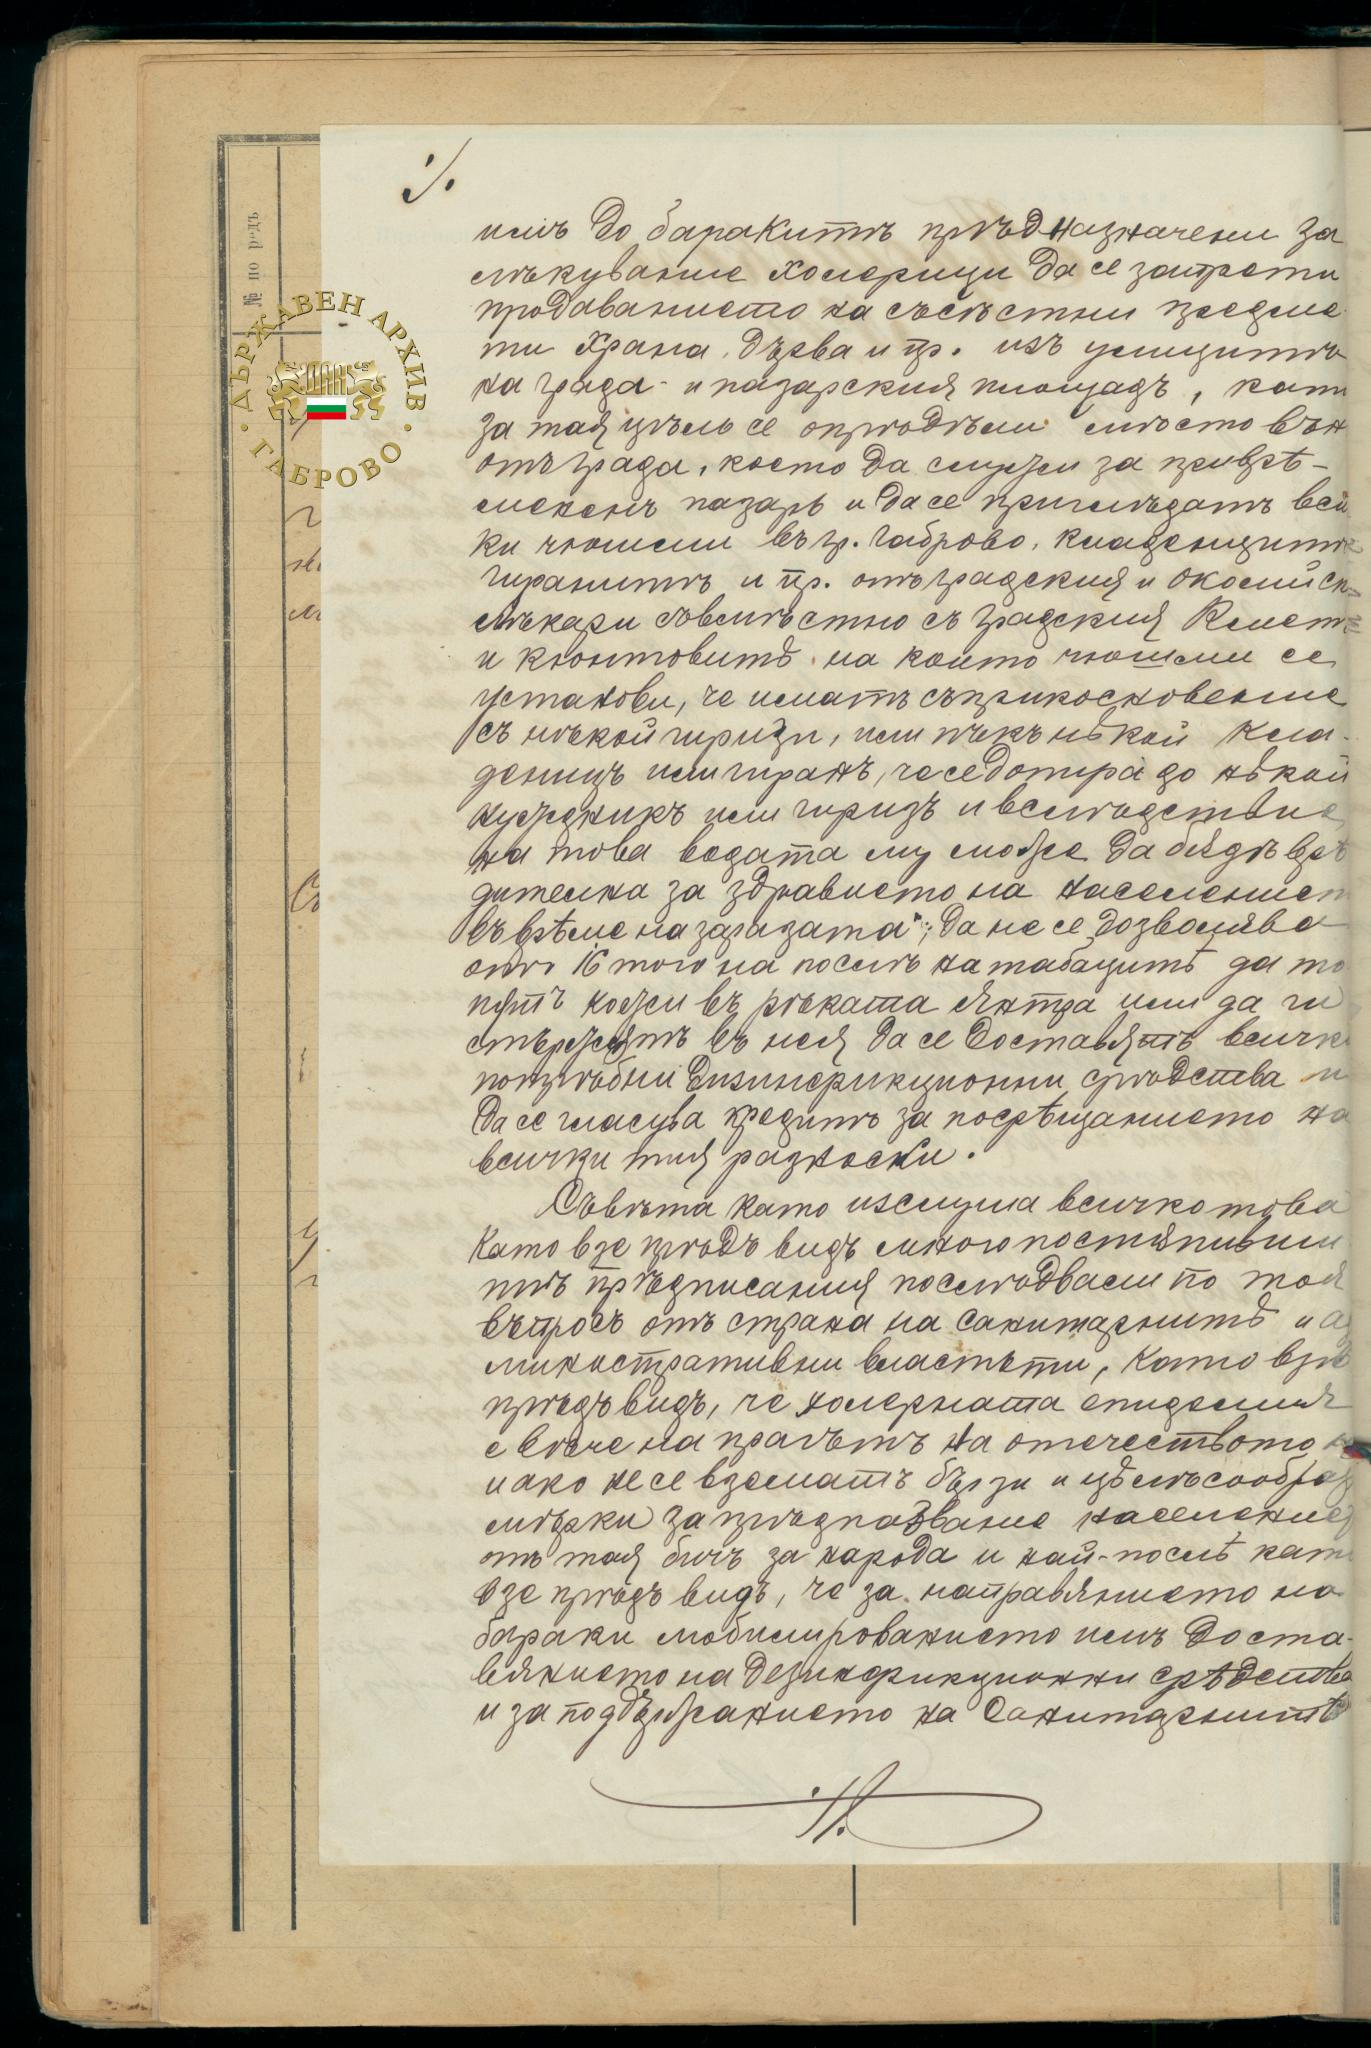 № по редъ
ДЪРЖАВЕН АРХИВ
ГАБРОВО
./.
имъ до баракитѣ прѣдназначени за
лѣкувание холерици да се запрети
продаванието на съѣстни предме
ти храна, дърва и пр. изъ улицитѣ
на града и пазарския площадъ, като
за тая цѣль се опрѣдѣли мѣсто вън
отъ града, което да служи за приврѣ-
мененъ пазаръ и да се пригледатъ вси
ки чюшми въ гр. Габрово, кладенцитѣ
гиранитѣ и пр. отъ градския и околийск
лѣкари съвмѣстно съ градския Кмет
и кюнтовитѣ на които чюшми се
установи, че иматъ съприкосновение
съ нѣкой гиризи, или пъкъ нѣкой кла-
денецъ или гиранъ, че се допира до нѣкой
нужникъ или гиризъ и вслѣдствие
на това водата му може да бѫдѣ врѣ
дителна за здравието на населениет
въ врѣме на заразата; да не се дозволява
отъ 16 того на послѣ на табацитѣ да то
пятъ кожи въ рѣката Янтра или да ги
стържятъ въ нея да се доставятъ всичк
потрѣбни дизинфикционни срѣдства и
да се гласува кредитъ за посрѣщанието на
всички тия разноски.
Съвѣта като изслуша всичко това
като взе прѣдъ видъ многопостѫпивши
тѣ прѣдписания послѣдвали по тоя
въпросъ отъ страна на санитарнитѣ и ад
министративни власти, като взе
прѣдъ видъ, че холерната епидемия
е вече на прагътъ на отечеството н
и ако не се взематъ бързи и цѣлесообраз
мѣрки за прѣдпазвание населениет
отъ тая бичъ за народа и най-послѣ като
взе прѣдъ видъ, че за направянието на
бараки мобилированието имъ доста-
вянието на дезинфикционни срѣдства
и за поддържанието на Санитарнитѣ
./.